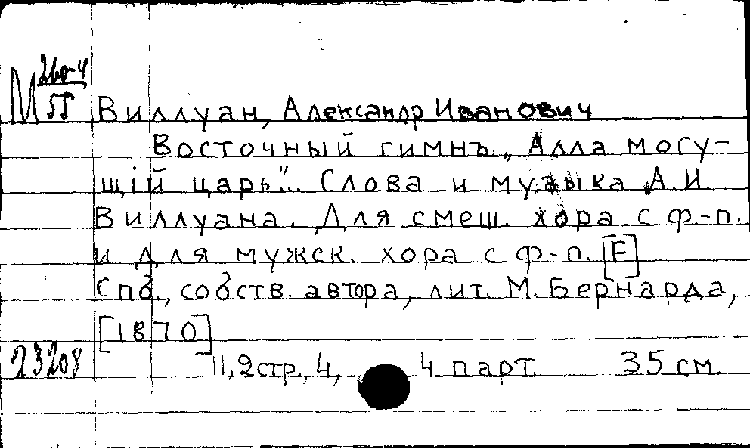 М 260-4
55
Виллуан, Александр Иванович
Восточный гимнъ "Алла могу-
щій царь". Слова и музыка А.И.
Виллуана. Для смеш. хора с ф.-п.
и для мужск. хора с ф.-п. [F]
Спб., собств. автора, лит. М. Бернарда,
[1870]
23208 11, 2 стр., 4, 4 парт. 35 см.